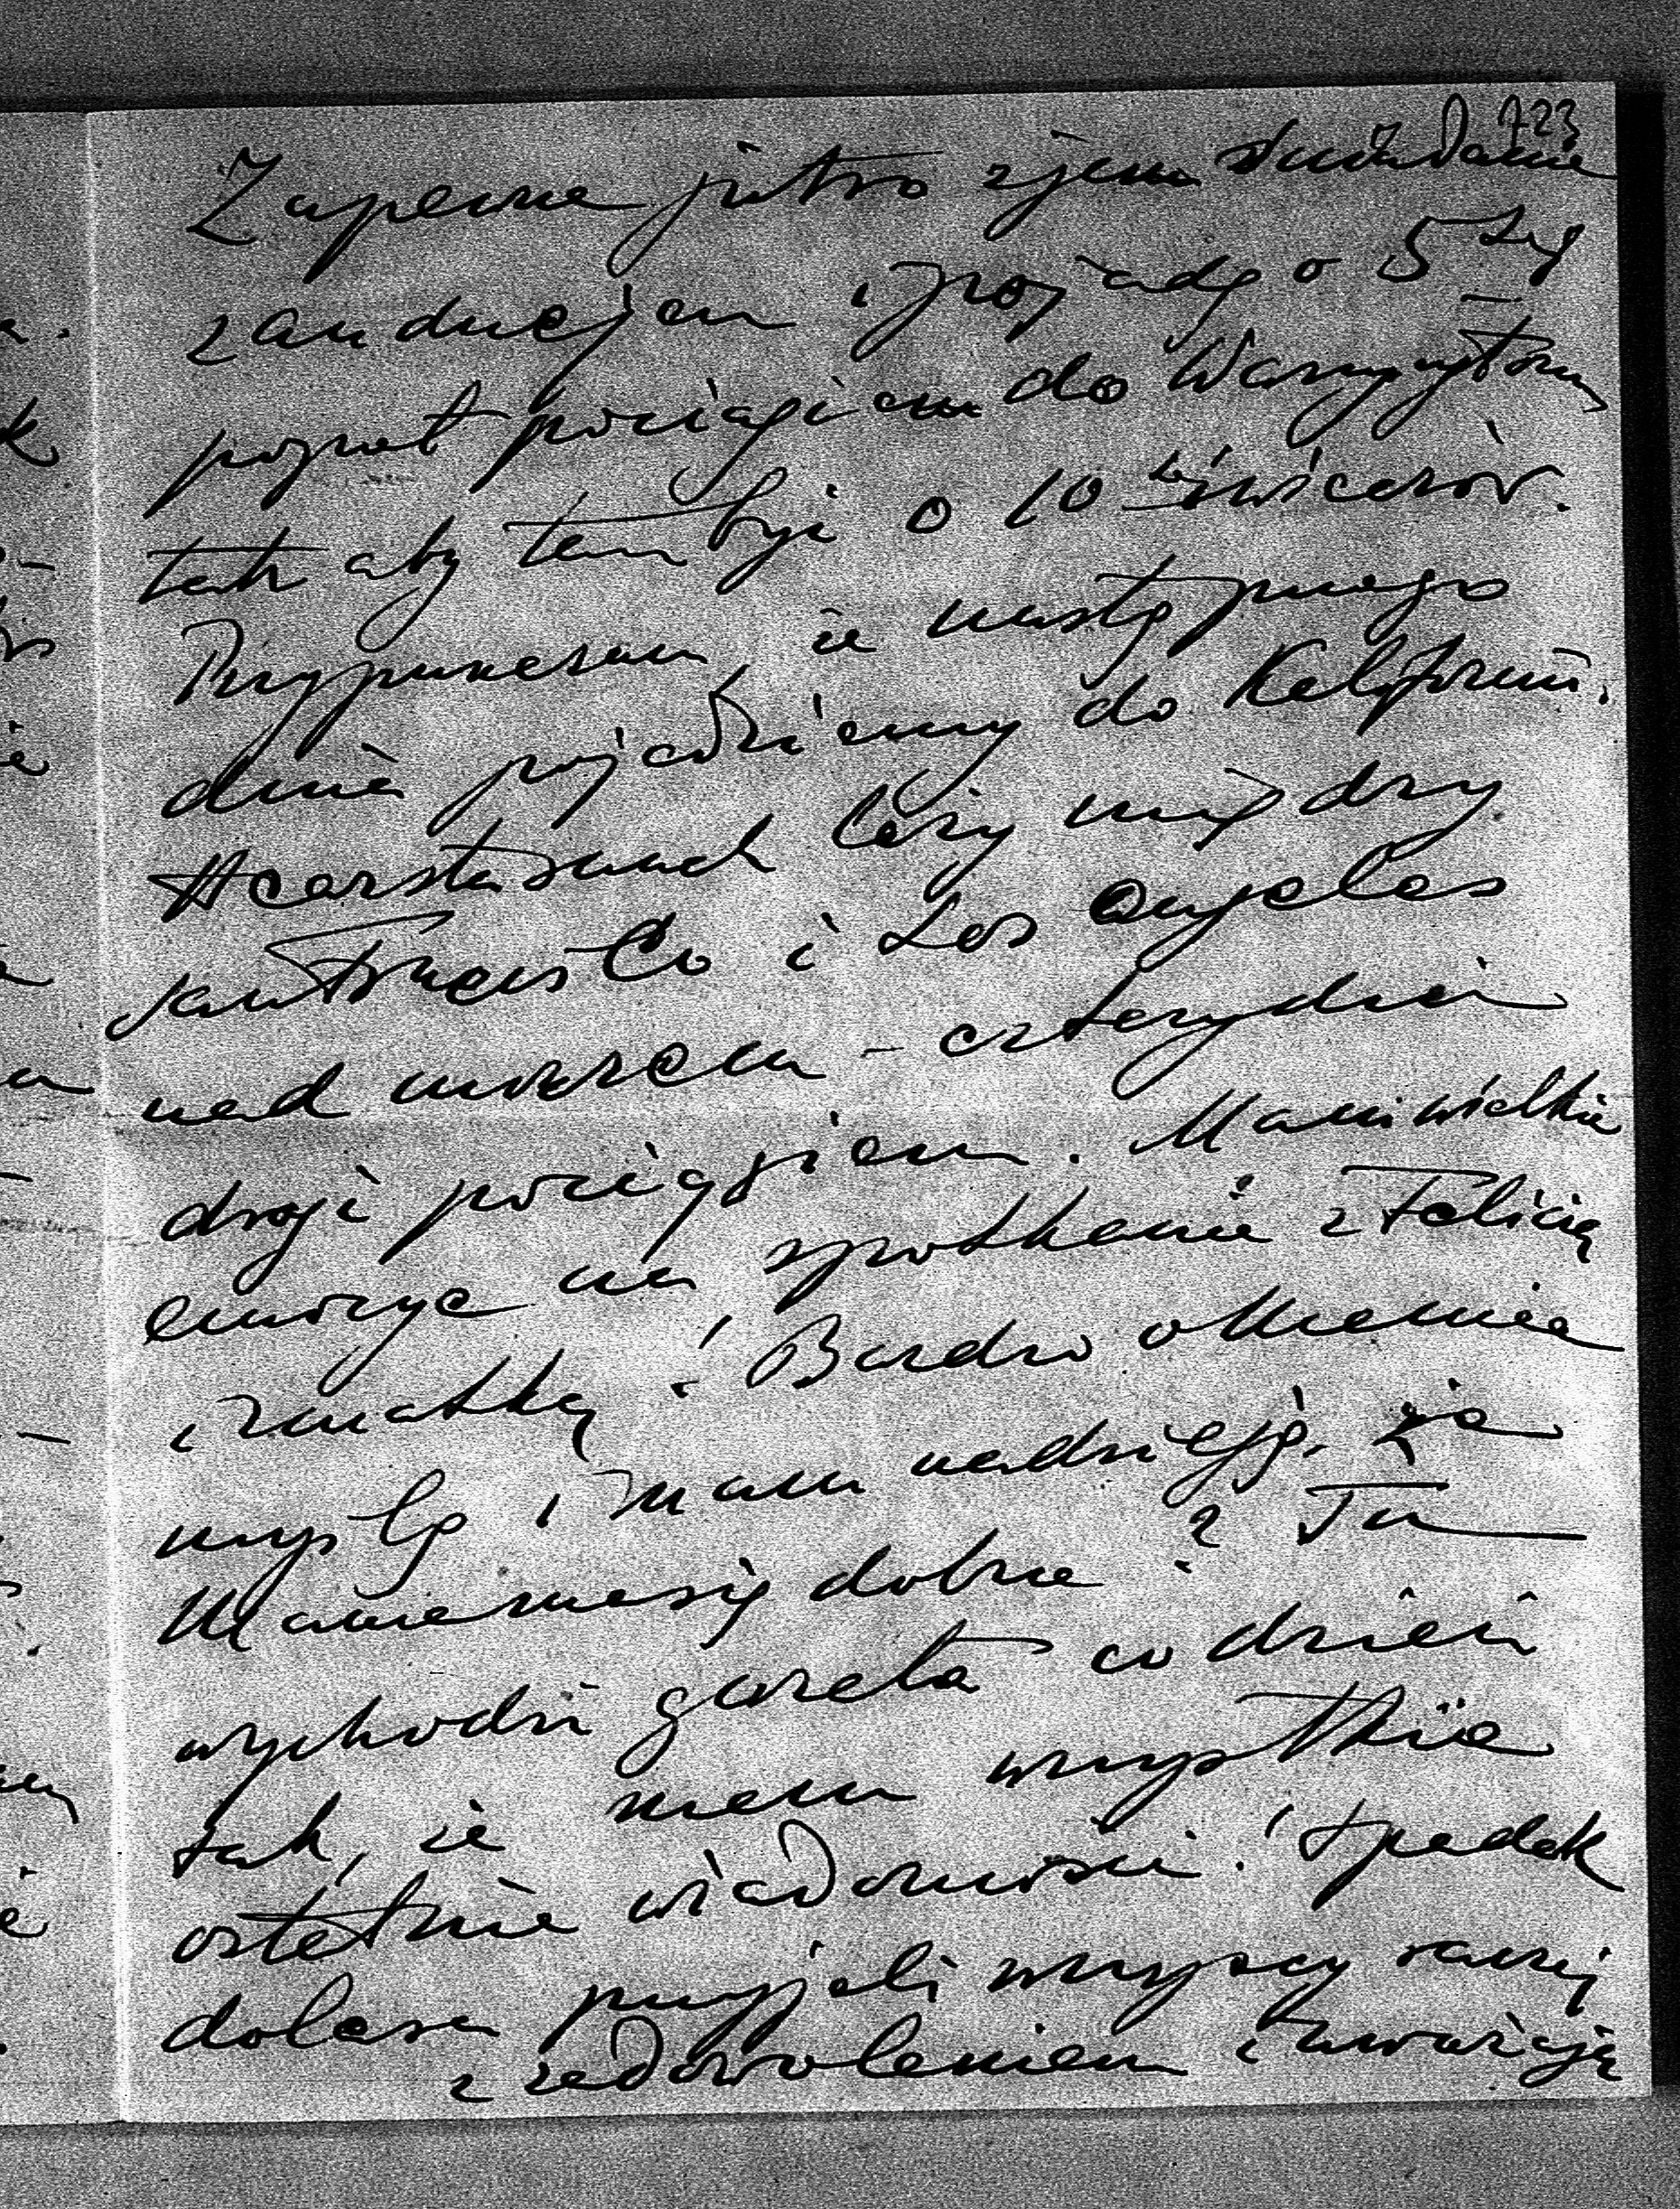 723
Zapewne jutro zjem śniadanie
z Andrzejem i pojadę o 5 tej
popoł pociągiem do Waszyngtonu
tak aby tam być o 10 tej wieczór.
Przypuszczam, że następnego
dnia pojedziemy do Kalifornii.
Hearst ranch leży między
San Francisco i Los Angeles
nad morzem – cztery dni
drogi pociągiem. Mam wielkie
emocye na spotkanie z Felicią
i z matką! Bardzo o Mamie
myślę i mam nadzieję, że
Mama ma się dobrze? Tu
wychodzi gazeta co dzień
tak, że mam wszystkie
ostatnie wiadomości! Spadek
dolara przyjęli wszyscy raczej
z zadowoleniem i uważają